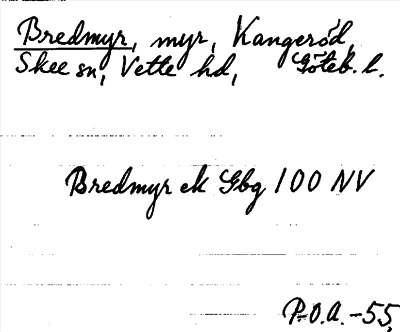 Bredmyr, myr, Kangeröd,
Skee sn, Vette hd, Göteb. l.
Bredmyr ek Gbg 100 NV
P.O.A. -55.